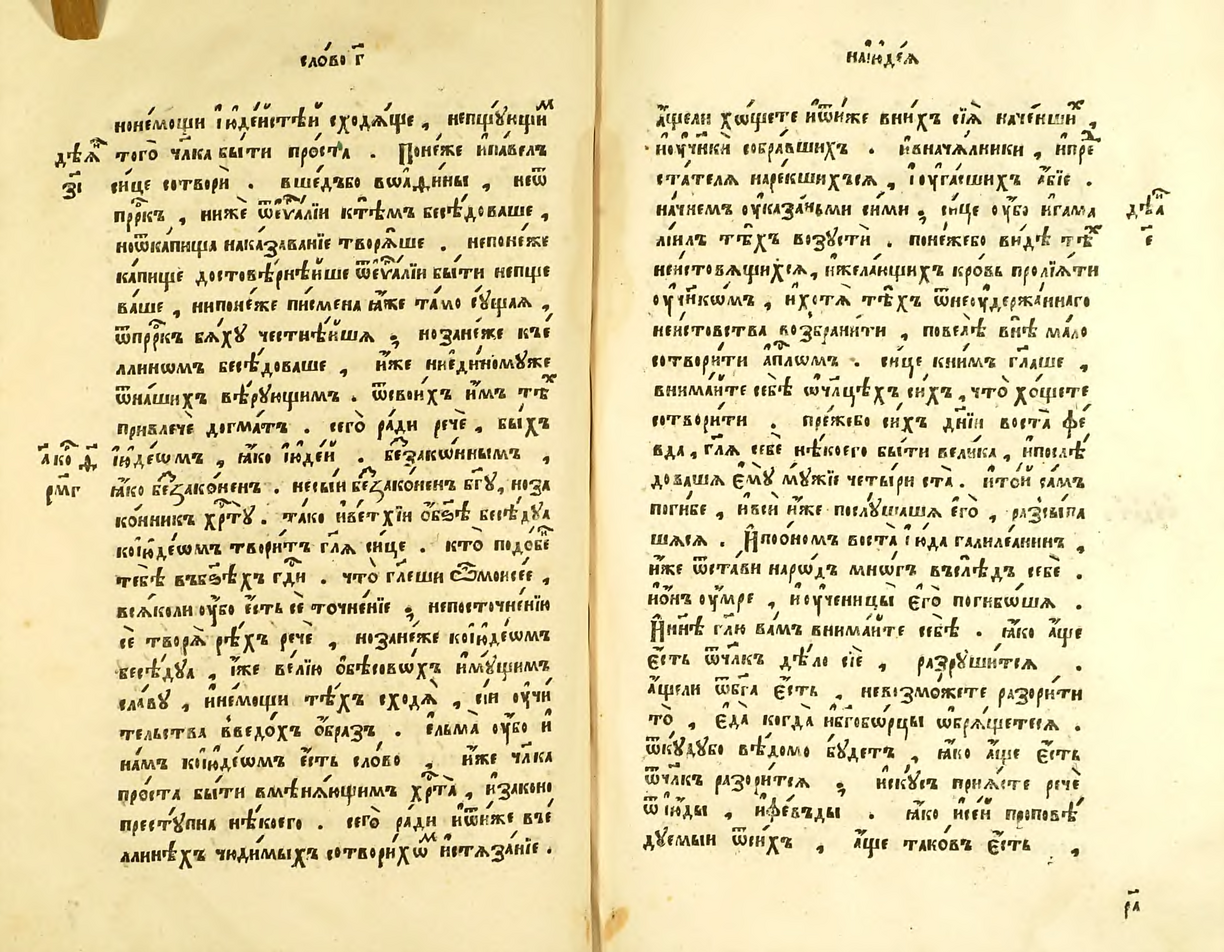 сло́во г҃
но не́мощи і҆юдейстѣй сходѧ́ще , непщꙋ́ющим
дѣѧ҃ того̀ чл҃ка бы́ти про́ста . Поне́же и҆ па́велъ
з҃і си́це сотворѝ . вшедъ бо в̾ о҆а҆ѳи́ны , не ѿ
прⷪ҇рк , нижѐ ѿ є҆ѵⷢ҇алїи к̾ тѣ́мъ бесѣ́доваше ,
но ѿ ка́пища наказа́ванїе творѧ́ше . не поне́же
ка́пище достовѣ́рнѣйше ѿ є҆ѵⷢ҇алїи бы́ти непще
ва́ше , ни поне́же писмена̀ ꙗ҆́же та́мо сꙋ́щаѧ ,
ѿ прⷪ҇ркъ бѧ́хꙋ честнѣ́йшѧ , но зане́же к̾ є҆́
ллинѡмъ бесѣ́доваше , и҆̀же ни є҆ди́номꙋже
ѿ на́шихъ вѣ́рꙋющимъ . ѿ свои́хъ и҆̀мъ тѣⷯ
привлечѐ до́гматъ . сего̀ ра́ди речѐ , бы́хъ
а҆̀ ко д҃ і҆юде́ѡмъ , ꙗ҆́ко і҆юде́й . беззако́ннымъ ,
рм҃г ꙗ҆́ко беззако́ненъ . не сы́й беззако́ненъ бг҃ꙋ , но за
ко́нникъ хрⷭ҇тꙋ . та́ко и҆ ве́тхїй ѻ҆бы́че бесѣ́дꙋѧ
ко і҆юде́ѡмъ твори́тъ гл҃ѧ си́це . кто̀ подо́бенъ
тебѣ̀ въ бз҃ѣхъ гдⷭ҇и . что̀ гл҃еши ѽ мѡисе́е ,
всѧ́ко ли ᲂу҆̀бо є҆́сть сѐ точне́нїе , не по сточне́нїю
сѐ творѧ̀ рѣ́хъ речѐ , но зане́же ко і҆юде́ѡмъ
бесѣ́дꙋѧ , и҆̀же ве́лїю ѻ҆ бѣ́совѡхъ и҆мꙋ́щимъ
сла́вꙋ , и҆ не́мощи тѣ́хъ сходѧ̀ , сі́й ᲂу҆чи́
тельства введо́хъ ѻ҆́бразъ . є҆льма̀ ᲂу҆̀бо и҆
на́мъ ко і҆юде́ѡмъ є҆́сть сло́во , и҆̀же чл҃ка
про́ста бы́ти вмѣнѧ́ющимъ хрⷭ҇та̀ , и҆ законо
престꙋ́пна нѣ́коего . сего̀ ра́ди и҆ ѿ и҆̀же въ є҆́
ллинѣхъ чюди́мыхъ сотвори́хѡⷨ и҆стѧза́нїе .
на і҆юде́ѧ
а҆́ще ли хо́щете и҆ ѿ и҆̀же в̾ ни́хъ сїѧ̀ наче́ншиⷯ ,
и҆ ᲂу҆ч҃нки̑ собра́вшихъ . и҆ нача́лники , и҆ пре
ста́телѧ наре́кшихъсѧ , і҆ ᲂу҆га́сшихъ а҆́бїе .
на́чнемъ ᲂу҆каза́ньми си́ми , си́це ᲂу҆́бо и҆ гама дѣѧ҃
лїи́лъ тѣ́хъ воз̾ ᲂу҆стѝ . поне́же бо ви́дѣ тѣⷯ є҃
неи́стовѧщихсѧ , и҆ жела́ющихъ кро́вь пролїѧ́ти
ᲂу҆ч҃нкѡмъ , и҆ хотѧ̀ тѣ́хъ ѿ неᲂу҆де́ржаннаго
неи́стовства возбрани́ти , повелѣ̀ внѣ̀ ма́ло
сотвори́ти а҆пⷭ҇лѡмъ . си́це к̾ ни́мъ гл҃аше ,
внима́йте себѣ̀ ѡ҆ чл҃цѣхъ си́хъ , что̀ хо́щете
сотвори́ти . пре́же бо си́хъ дн҃їй воста̀ ѳе́
вда , гл҃ѧ себѐ нѣ́коего бы́ти вели́ка , и҆ послѣ́
доваша є҆мꙋ̀ мꙋ́жїе четы́ри ста . и҆ то́й са́мъ
поги́бе , и҆ всѝ и҆̀же послꙋ́шаша є҆го̀ , разсы́па
шѧсѧ . И҆ по ѻ҆номъ воста̀ і҆ю́да галиле́анинъ ,
и҆̀же ѿста́ви наро́дъ мно́гъ въслѣ́дъ себѐ .
и҆ ѻ҆́нъ ᲂу҆́мре , и҆ ᲂу҆ченицы̀ є҆гѡ̀ поги́бѡша .
И҆ нн҃ѣ гл҃ю ва́мъ внима́йте себѣ̀ . ꙗ҆́ко а҆́ще
є҆́сть ѿ чл҃къ дѣ́ло сїѐ , разрꙋши́тсѧ .
а҆́ще ли ѿ бг҃а є҆́сть , не возмо́жете разори́ти
то̀ , є҆да̀ когда̀ и҆ бг҃обо́рцы ѡ҆брѧ́щетесѧ .
ѿкꙋ́дꙋ ᲂу҆бо вѣ́домо бꙋ́детъ , ꙗ҆́ко а҆́ще є҆́сть
ѿ чл҃къ разори́тсѧ , и҆скꙋ́съ прїи́мете речѐ
ѿ і҆ю́ды , и҆ ѳе́въды . ꙗ҆́ко и҆ се́й проповѣ́
дꙋемый ѿ си́хъ , а҆́ще тако́въ є҆́сть ,
ра҃